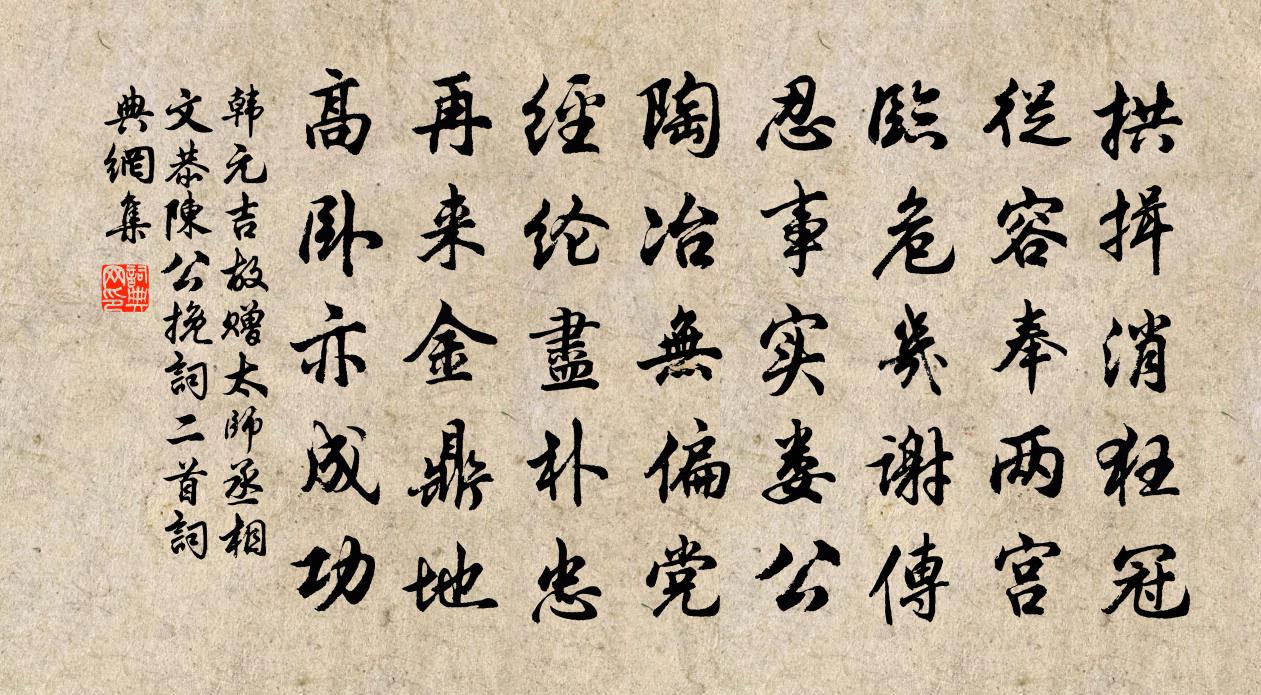 拱揖消狂冠
從容奉两宫
臨危幾謝傅
忍事实娄公
陶冶無偏党
經纶盡朴忠
再来金鼎地
高卧亦成功
韩元吉故赠太師丞相
文恭陳公挽詞二首詞
典網集
詞典网印